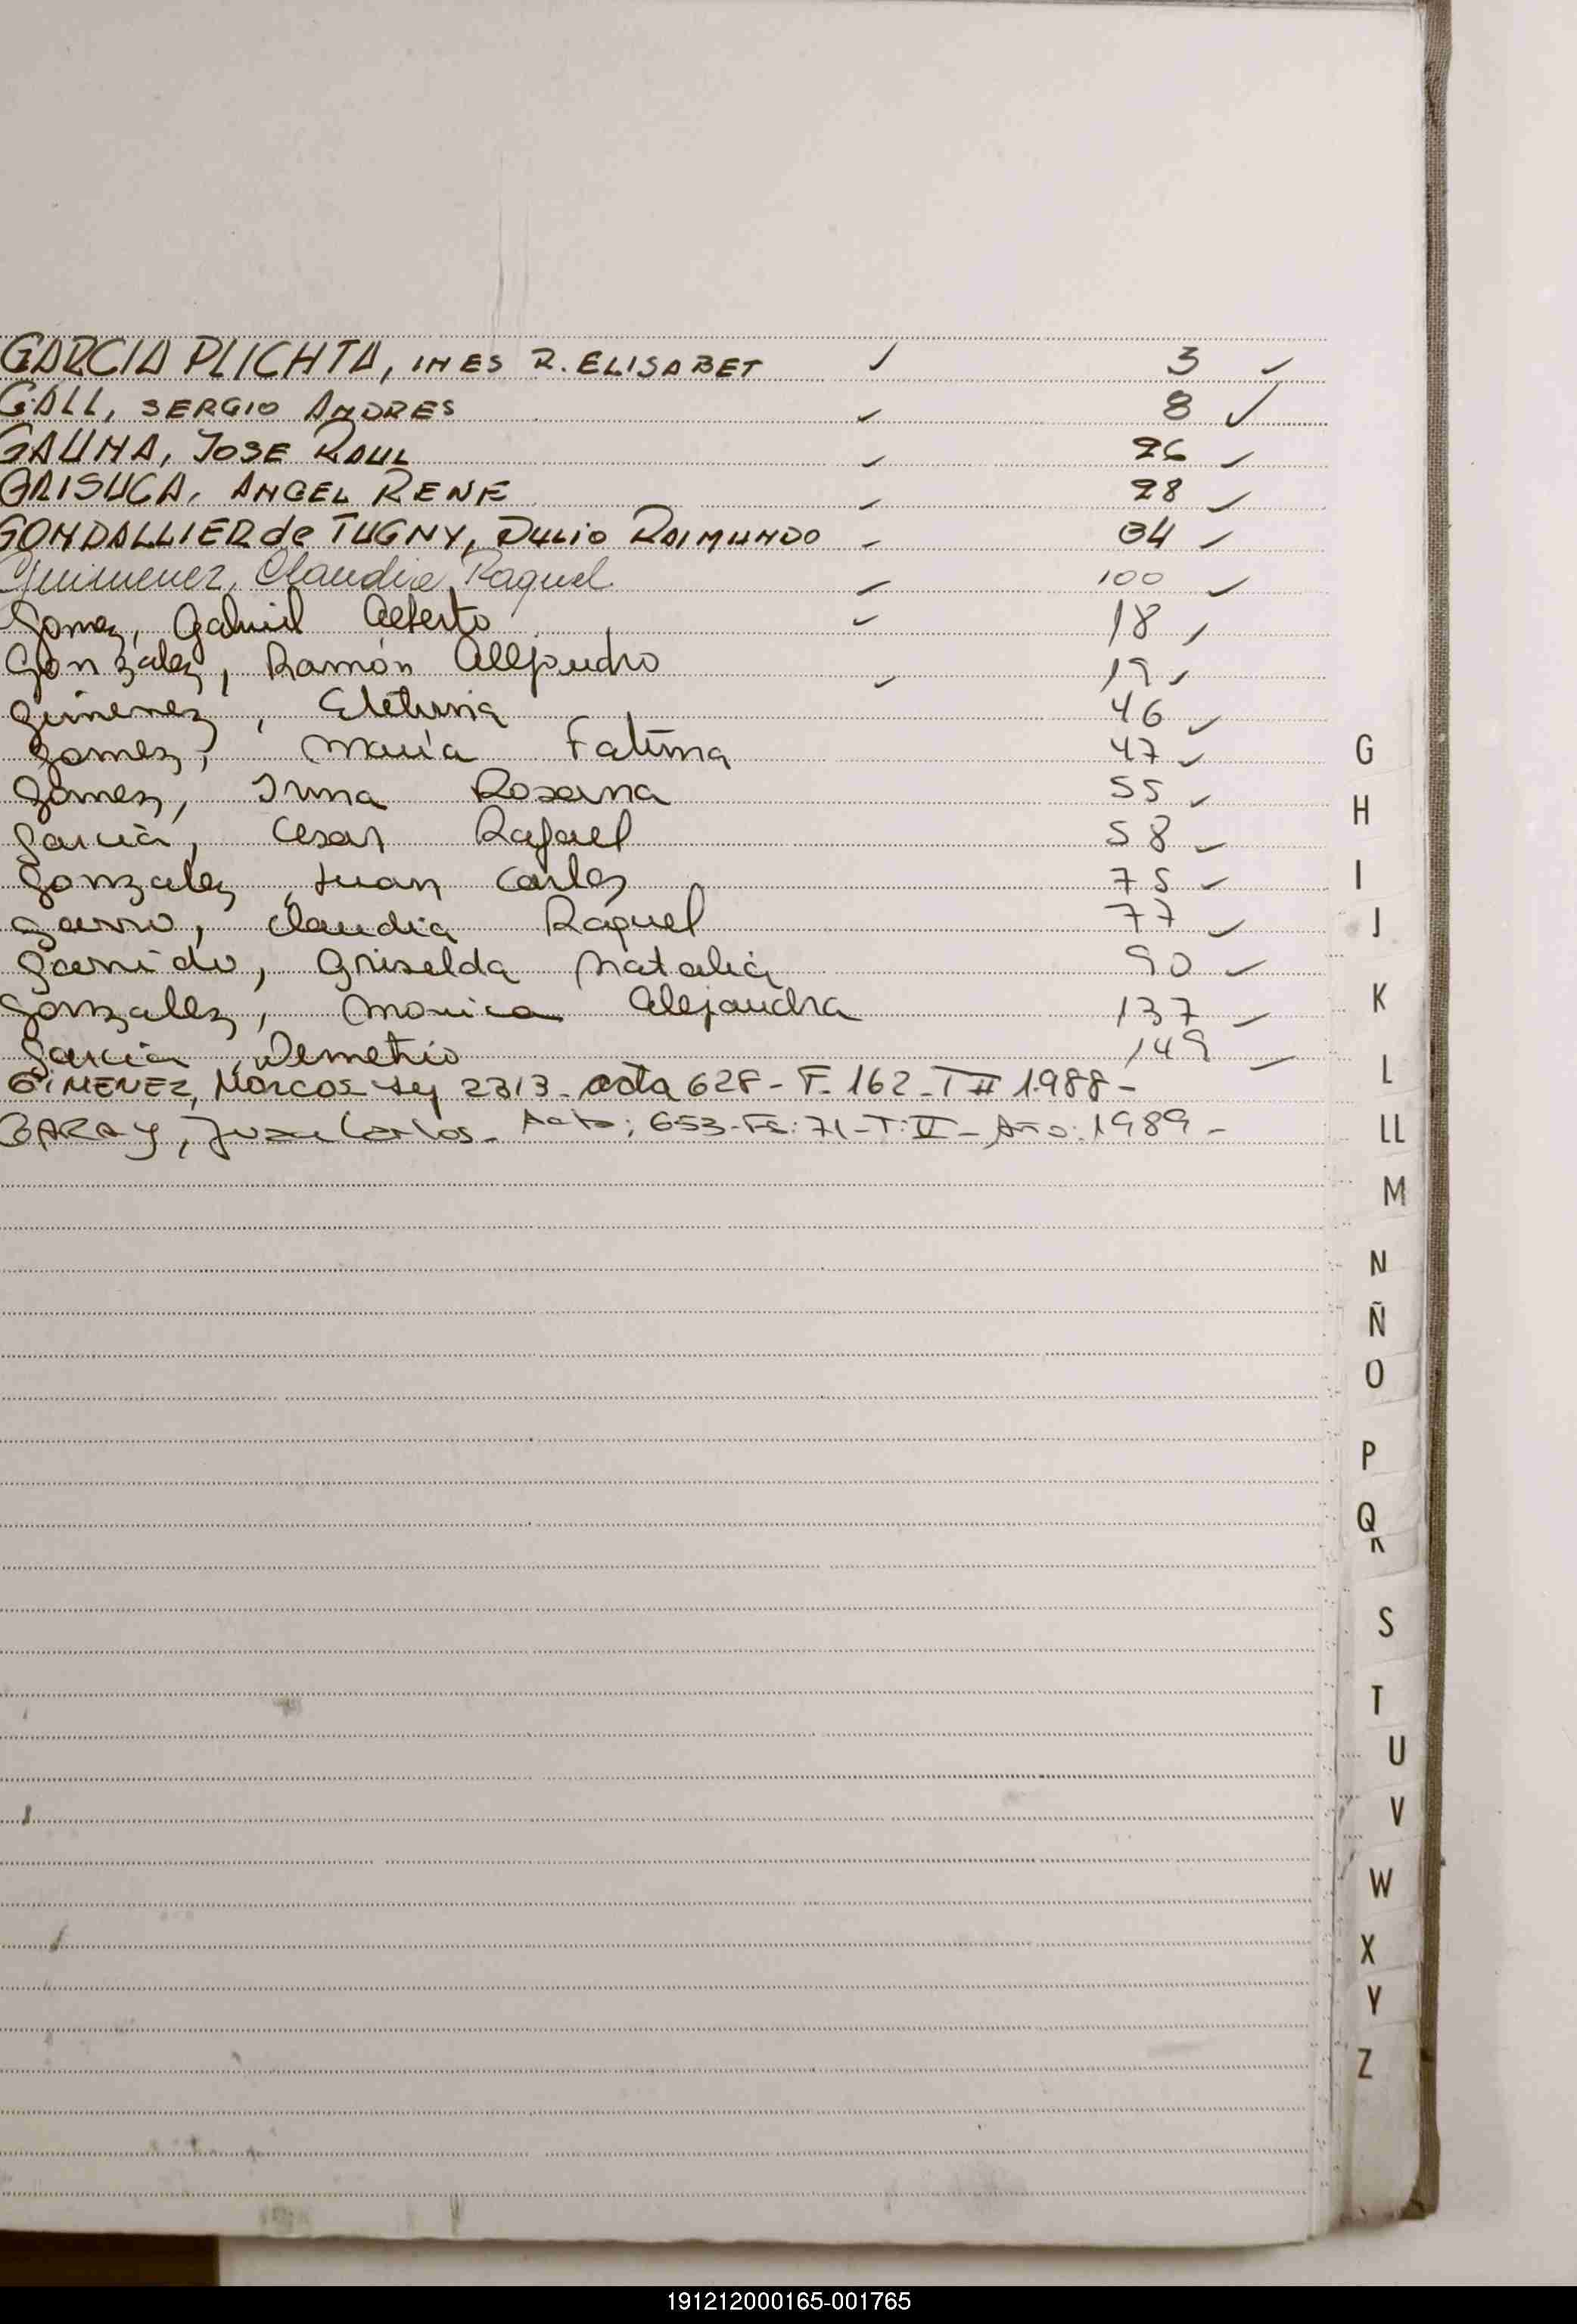 GARCIA PLICHTA, INES R. ELISABET ✓ 3 ✓
GALL, SERGIO ANDRES ✓ 8 ✓
GAUNA, JOSE RAUL ✓ 26 ✓
GRISUCA, ANGEL RENE ✓ 28 ✓
GONDALLIER de TUGNY, JULIO RAIMUNDO ✓ 34 ✓
Guimenez, Claudia Raquel ✓ 100 ✓
Gomez, Gabriel Alberto ✓ 18 ✓
Gonzalez, Ramón Alejandro ✓ 19 ✓
Gimenez, 46 ✓
Gomez, María Fatima 47 ✓
Gomez, Irma Rosana 55 ✓
Garcia, Cesar Rafael 58 ✓
Gonzalez, Juan Carlos 75 ✓
Garro, Claudia Raquel 77 ✓
Garrido, Griselda Natalia 90 ✓
Gonzalez, Monica Alejandra 137 ✓
Garcia, Demetrio 149 ✓
GIMENEZ, Marcos Ley 2313 - acta 628 - F. 162 - T II 1.988 -
GARAY, Juan Carlos - Acta: 653 - Fs: 71 - T: VI - Año: 1989 -
G
H
I
J
K
L
LL
M
N
Ñ
O
P
Q
R
S
T
U
V
W
X
Y
Z
191212000165-001765